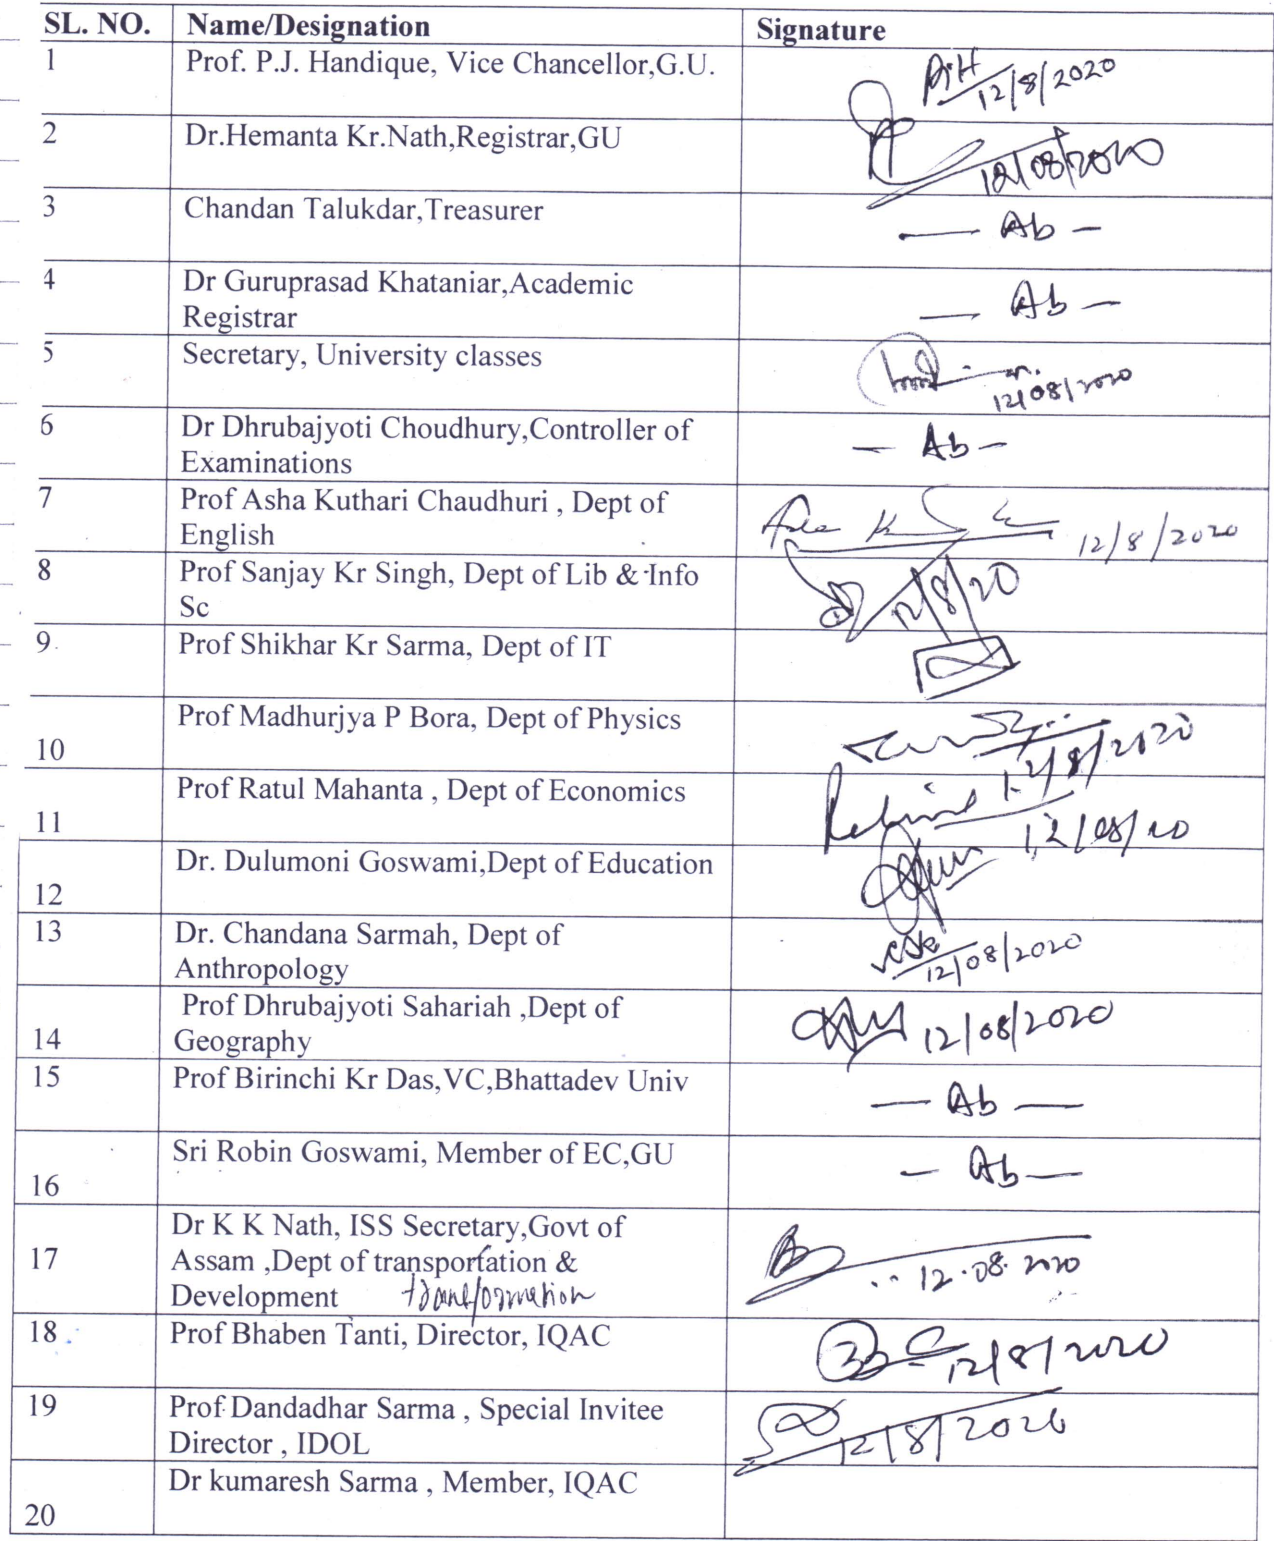 SL. NO. Name/Designation Signature
1 Prof. P.J. Handique, Vice Chancellor,G.U. 12/8/2020
2 Dr.Hemanta Kr.Nath,Registrar,GU 12/08/2020
3 Chandan Talukdar,Treasurer — Ab —
4 Dr Guruprasad Khataniar,Academic — Ab —
Registrar
5 Secretary, University classes 12/08/2020
6 Dr Dhrubajyoti Choudhury,Controller of — Ab —
Examinations
7 Prof Asha Kuthari Chaudhuri , Dept of 12/8/2020
English
8 Prof Sanjay Kr Singh, Dept of Lib & Info 12/8/20
Sc
9 Prof Shikhar Kr Sarma, Dept of IT
Prof Madhurjya P Bora, Dept of Physics 12/8/2020
10
Prof Ratul Mahanta , Dept of Economics 12/08/20
11
Dr. Dulumoni Goswami,Dept of Education
12
13 Dr. Chandana Sarmah, Dept of 12/08/2020
Anthropology
Prof Dhrubajyoti Sahariah ,Dept of 12/08/2020
14 Geography
15 Prof Birinchi Kr Das,VC,Bhattadev Univ — Ab —
Sri Robin Goswami, Member of EC,GU — Ab —
16
Dr K K Nath, ISS Secretary,Govt of
17 Assam ,Dept of transportation & 12.08.2020
Development transformation
18 Prof Bhaben Tanti, Director, IQAC 12/8/2020
19 Prof Dandadhar Sarma , Special Invitee 12/8/2020
Director , IDOL
Dr kumaresh Sarma , Member, IQAC
20